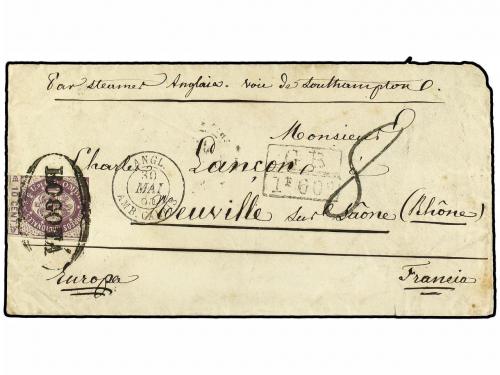 Par steamer Anglais. voie de Southampton.
Monsieur
Charles Lançon, à
Neuville sur Saône (Rhône)
Europa Francia
BOGOTA
ANGL.
30
MAI
AMB. CALAIS
GB
1F 60c
8